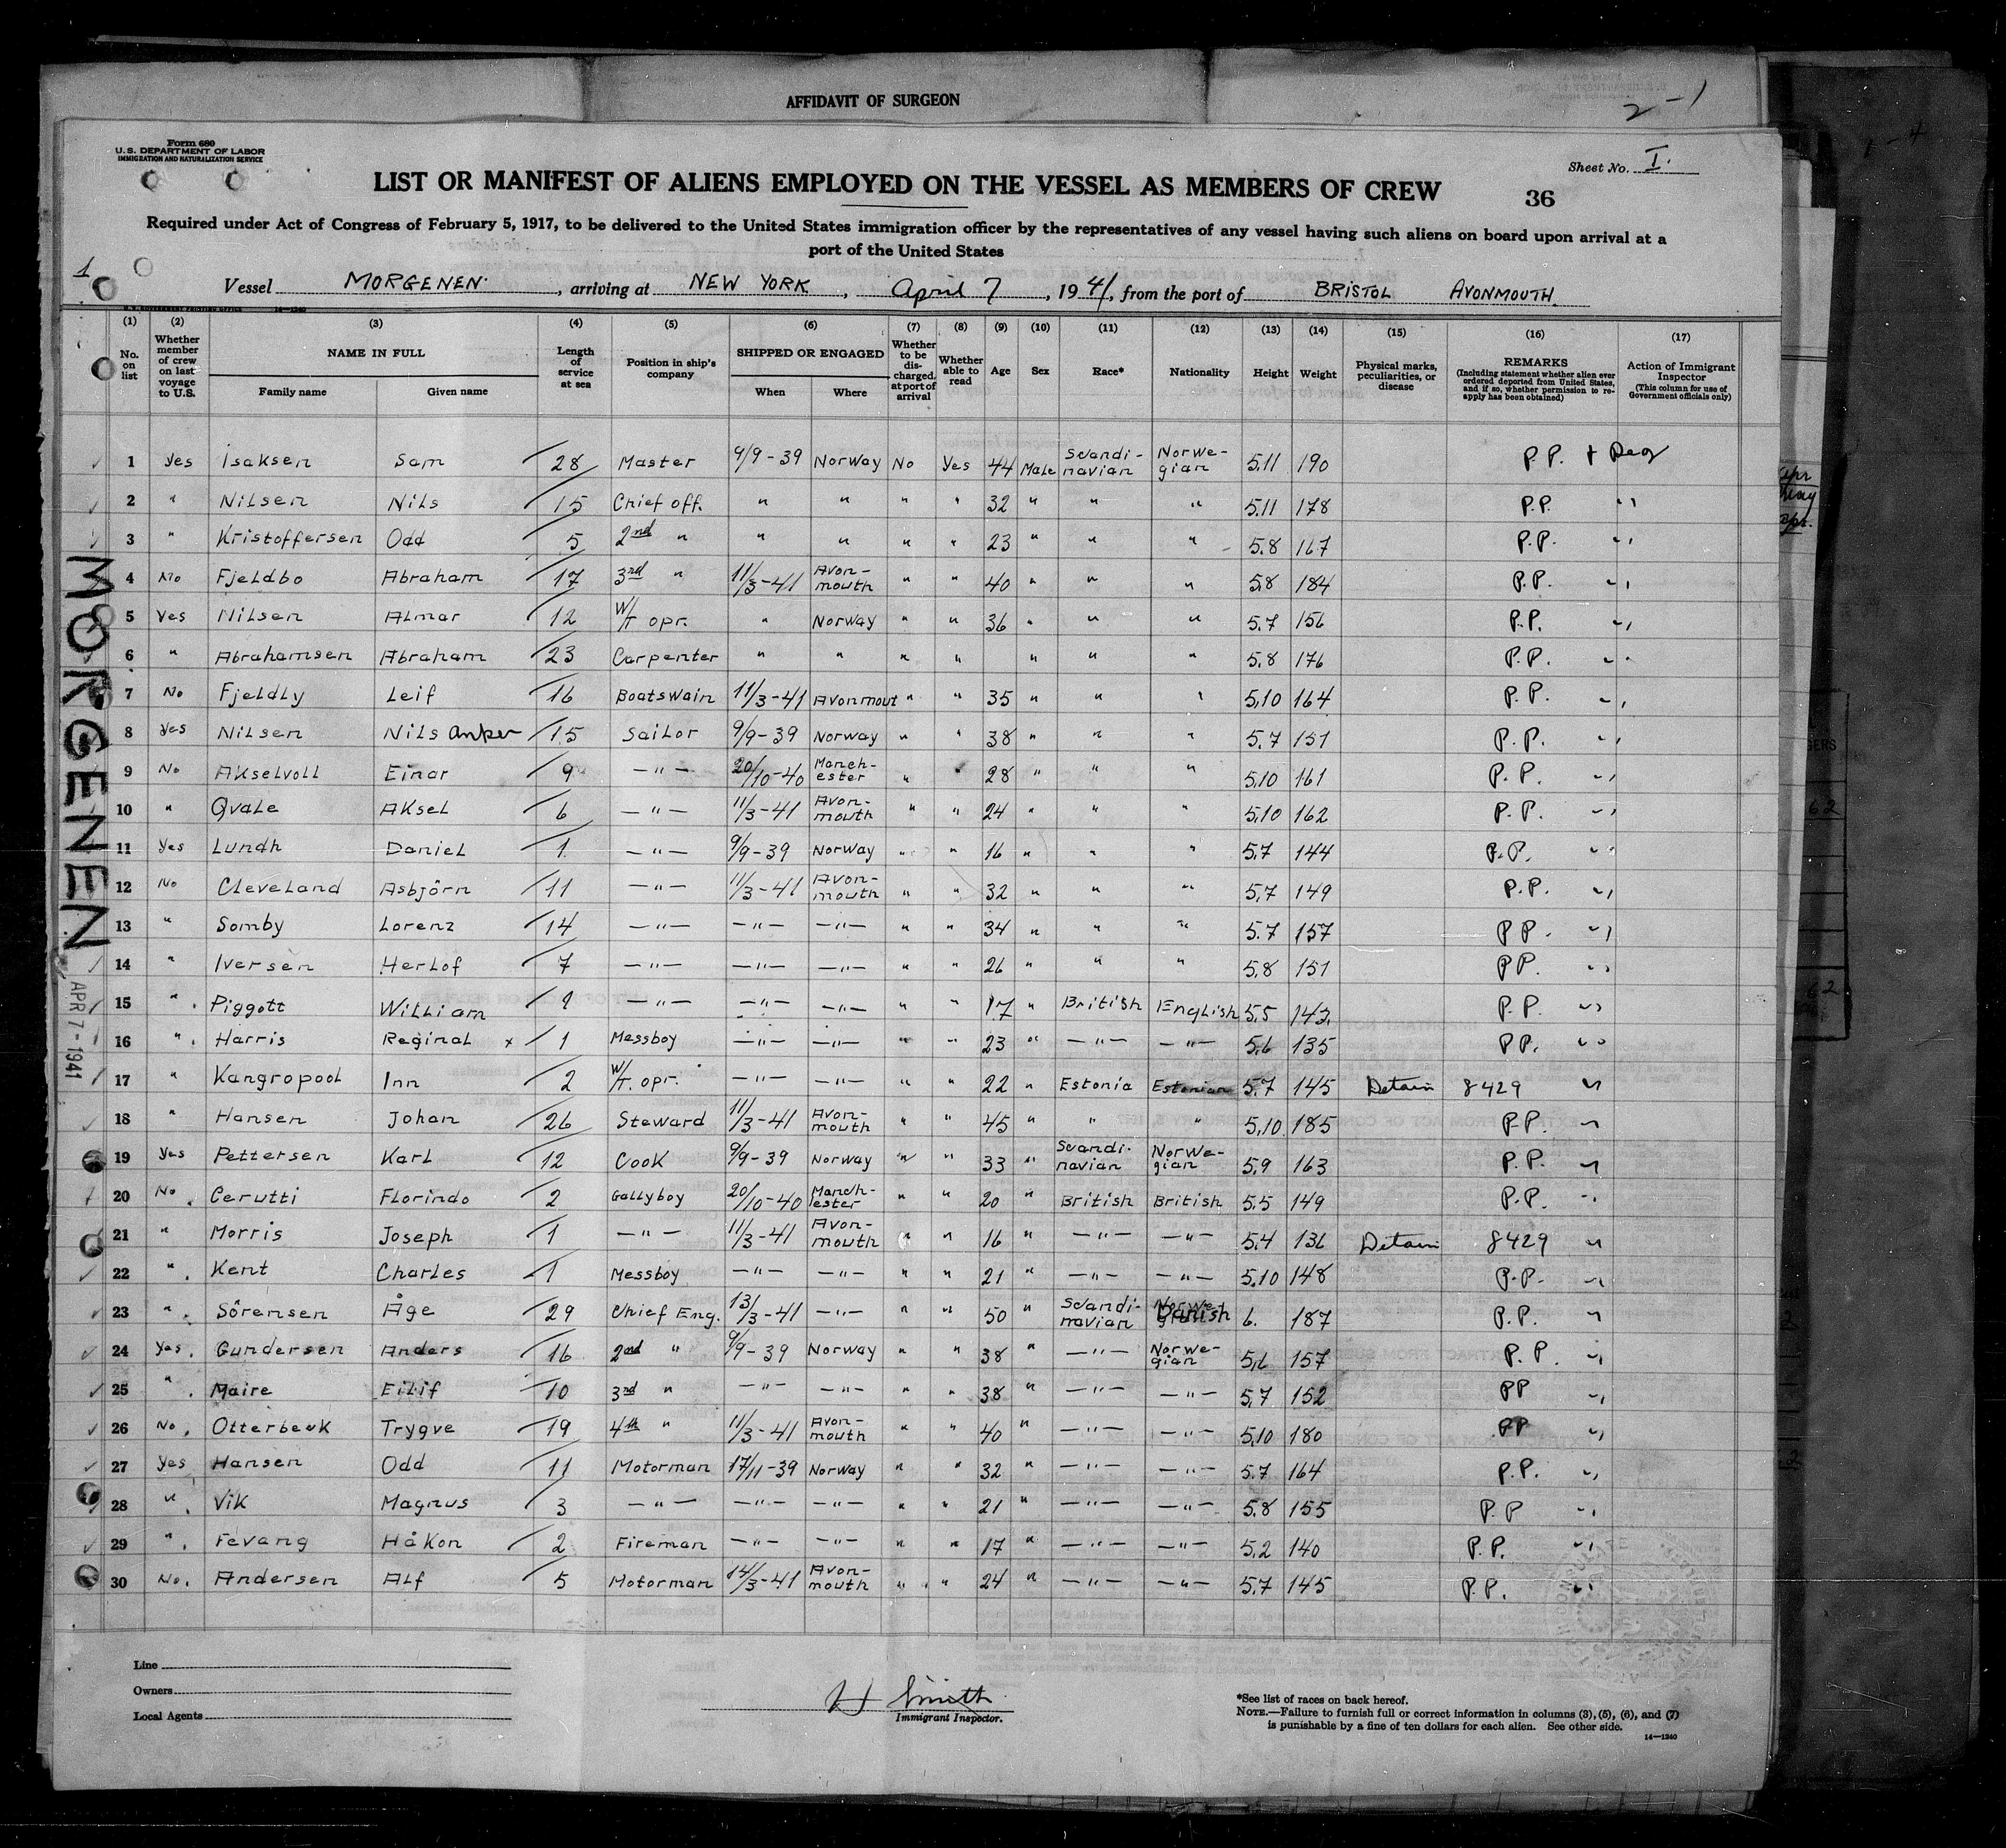 AFFIDAVIT OF SURGEON
2-1
Form 680
U. S. DEPARTMENT OF LABOR
IMMIGRATION AND NATURALIZATION SERVICE
Sheet No. I.
LIST OR MANIFEST OF ALIENS EMPLOYED ON THE VESSEL AS MEMBERS OF CREW
36
Required under Act of Congress of February 5, 1917, to be delivered to the United States immigration officer by the representatives of any vessel having such aliens on board upon arrival at a
port of the United States
1
Vessel MORGENEN. , arriving at NEW YORK , April 7 , 1941, from the port of BRISTOL AVONMOUTH.
(1) No. on list (2) Whether member of crew on last voyage to U.S. (3) NAME IN FULL Family name Given name (4) Length of service at sea (5) Position in ship's company (6) SHIPPED OR ENGAGED When Where (7) Whether to be discharged at port of arrival (8) Whether able to read (9) Age (10) Sex (11) Race* (12) Nationality (13) Height (14) Weight (15) Physical marks, peculiarities, or disease (16) REMARKS (Including statement whether alien ever ordered deported from United States, and if so, whether permission to re-apply has been obtained) (17) Action of Immigrant Inspector (This column for use of Government officials only)
1 Yes Isaksen Sam 28 Master 9/9-39 Norway No Yes 44 Male Scandi-navian Norwe-gian 5.11 190 P.P. + Reg
2 " Nilsen Nils 15 Chief off. " " " " 32 " " " 5.11 178 P.P. "
3 " Kristoffersen Odd 5 2nd " " " " " 23 " " " 5.8 167 P.P. "
4 No Fjeldbo Abraham 17 3rd " 11/3-41 Avon-mouth " " 40 " " " 5.8 184 P.P. "
5 Yes Nilsen Almar 12 W/T opr. " Norway " " 36 " " " 5.7 156 P.P. "
6 " Abrahamsen Abraham 23 Carpenter " " " " " " " 5.8 176 P.P. "
7 No Fjeldly Leif 16 Boatswain 11/3-41 Avonmout " " 35 " " " 5,10 164 P.P. "
8 Yes Nilsen Nils Anker 15 Sailor 9/9-39 Norway " " 38 " " " 5.7 151 P.P. "
9 No Akselvoll Einar 9 -"- 20/10-40 Manch-ester " " 28 " " " 5,10 161 P.P. "
10 " Qvale Aksel 6 -"- 11/3-41 Avon-mouth " " 24 " " " 5,10 162 P.P. "
11 Yes Lundh Daniel 1 -"- 9/9-39 Norway " " 16 " " " 5,7 144 P.P. "
12 No Cleveland Asbjörn 11 -"- 11/3-41 Avon-mouth " " 32 " " " 5,7 149 P.P. "
13 " Somby Lorenz 14 -"- -"- -"- " " 34 " " " 5.7 157 P P. "
14 " Iversen Herlof 7 -"- -"- -"- " " 26 " " " 5.8 151 PP. "
15 " Piggott William 1 -"- -"- -"- " " 17 " British English 5.5 143 P.P. "
16 " Harris Reginal x 1 Messboy -"- -"- " " 23 " -"- -"- 5.6 135 PP. "
17 " Kangropool Inn 2 W/T. opr. -"- -"- " " 22 " Estonia Estonian 5.7 145 Detain 8429 "
18 " Hansen Johan 26 Steward 11/3-41 Avon-mouth " " 45 " " " 5,10 185 P.P. "
19 Yes Pettersen Karl 12 Cook 9/9-39 Norway " " 33 " Scandi-navian Norwe-gian 5.9 163 P.P. "
20 No Cerutti Florindo 2 Gallyboy 20/10-40 Manch-ester " " 20 " British British 5.5 149 P.P. "
21 " Morris Joseph 1 -"- 11/3-41 Avon-mouth " " 16 " -"- -"- 5.4 136 Detain 8429 "
22 " Kent Charles 1 Messboy -"- -"- " " 21 " -"- -"- 5,10 148 P.P. "
23 " Sörensen Åge 29 Chief Eng. 13/3-41 -"- " " 50 " Scandi-navian Danish 6. 187 P.P. "
24 Yes Gundersen Anders 16 2nd " 9/9-39 Norway " " 38 " -"- Norwe-gian 5,6 157 P.P. "
25 " Maire Eilif 10 3rd " -"- -"- " " 38 " -"- -"- 5,7 152 PP "
26 No Otterbeck Trygve 19 4th " 11/3-41 Avon-mouth " " 40 " -"- -"- 5,10 180 PP "
27 Yes Hansen Odd 11 Motorman 17/11-39 Norway " " 32 " -"- -"- 5.7 164 P.P. "
28 " Vik Magnus 3 -"- -"- -"- " " 21 " -"- -"- 5.8 155 P.P "
29 " Fevang Håkon 2 Fireman -"- -"- " " 17 " -"- -"- 5.2 140 P.P. "
30 No. Andersen Alf 5 Motorman 14/3-41 Avon-mouth " " 24 " -"- -"- 5.7 145 P.P. "
MORGENEN
APR 7-1941
Line
Owners
Local Agents
H Smith
Immigrant Inspector.
*See list of races on back hereof.
NOTE.—Failure to furnish full or correct information in columns (3), (5), (6), and (7)
is punishable by a fine of ten dollars for each alien. See other side.
14—1240